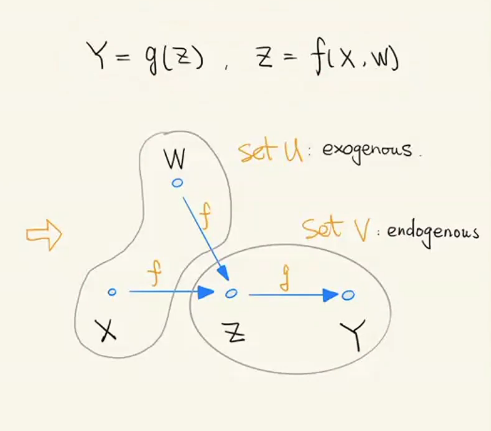 Y = g(Z) , Z = f(X, W)
W
set U: exogenous.
f
set V: endogenous
f
g
X
Z
Y